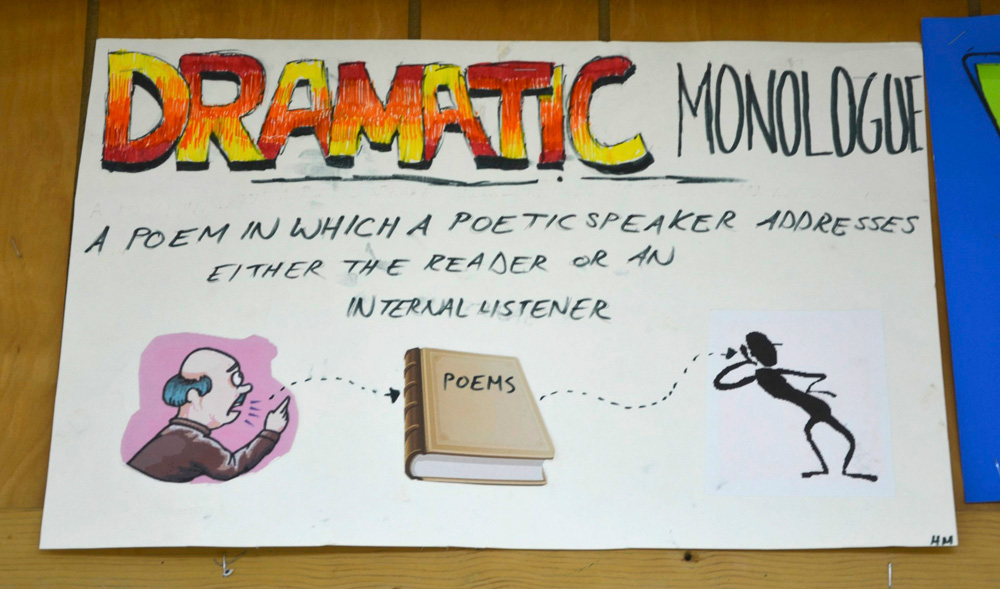 DRAMATIC MONOLOGUE
A POEM IN WHICH A POETIC SPEAKER ADDRESSES
EITHER THE READER OR AN
INTERNAL LISTENER
POEMS
HM